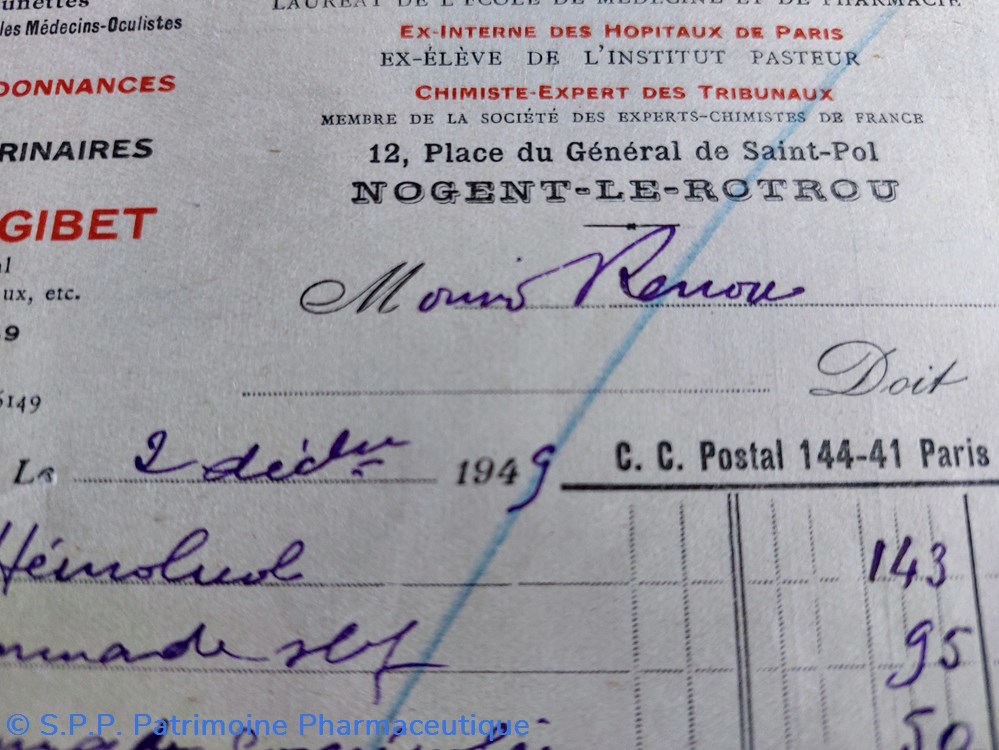 LAURÉAT DE L'ÉCOLE DE MÉDECINE ET DE PHARMACIE
EX-INTERNE DES HOPITAUX DE PARIS
EX-ÉLÈVE DE L'INSTITUT PASTEUR
CHIMISTE-EXPERT DES TRIBUNAUX
MEMBRE DE LA SOCIÉTÉ DES EXPERTS-CHIMISTES DE FRANCE
12, Place du Général de Saint-Pol
NOGENT-LE-ROTROU
unettes
les Médecins-Oculistes
DONNANCES
RINAIRES
GIBET
al
ux, etc.
9
6149
M Renou
Doit
Le 2 décbre 1949
C. C. Postal 144-41 Paris
Hémoluol 143
mmade 95
50
© S.P.P. Patrimoine Pharmaceutique